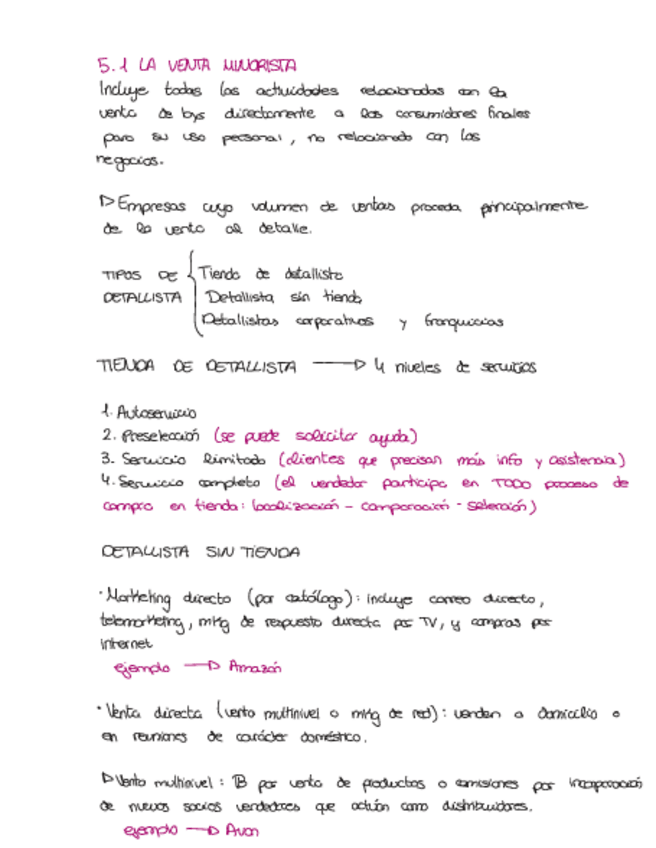 5.1 LA VENTA MINORISTA
Incluye todas las actividades relacionadas con la
venta de bys directamente a los consumidores finales
para su uso personal, no relacionado con los
negocios.
▷ Empresas cuyo volumen de ventas proceda principalmente
de la venta al detalle.
TIPOS DE { Tienda de detallista
DETALLISTA Detallista sin tienda
Detallistas corporativos y franquicias
TIENDA DE DETALLISTA → 4 niveles de servicios
1. Autoservicio
2. Preselección (se puede solicitar ayuda)
3. Servicio limitado (clientes que precisan más info y asistencia)
4. Servicio completo (el vendedor participa en TODO proceso de
compra en tienda: localización - comparación - selección)
DETALLISTA SIN TIENDA
· Marketing directo (por catálogo): incluye correo directo,
telemarketing, mkg de respuesta directa por TV, y compras por
internet
ejemplo → Amazon
· Venta directa (venta multinivel o mkg de red): venden a domicilio o
en reuniones de carácter doméstico.
▷ Venta multinivel: B por venta de productos o comisiones por incorporación
de nuevos socios vendedores que actúan como distribuidores.
ejemplo → Avon